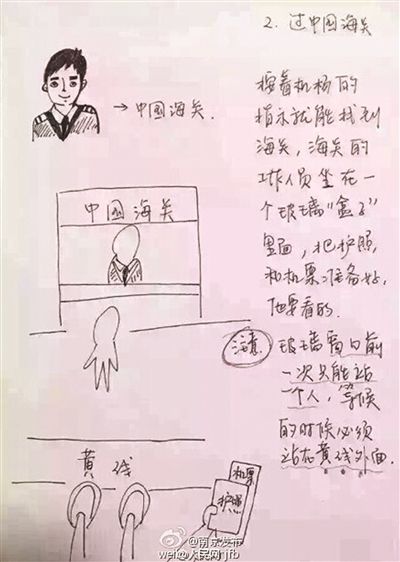 2. 过中国海关
→中国海关.
按着机场的
指示就能找到
海关，海关的
工作人员坐在一
个玻璃“盒子”
里面，把护照
和机票准备好，
他要看的.
中国海关
注意 玻璃窗口前
一次只能站
一个人，等候
的时候必须
站在黄线外面.
黄线
机票
护照
@南京发布
wei@人民网jfb